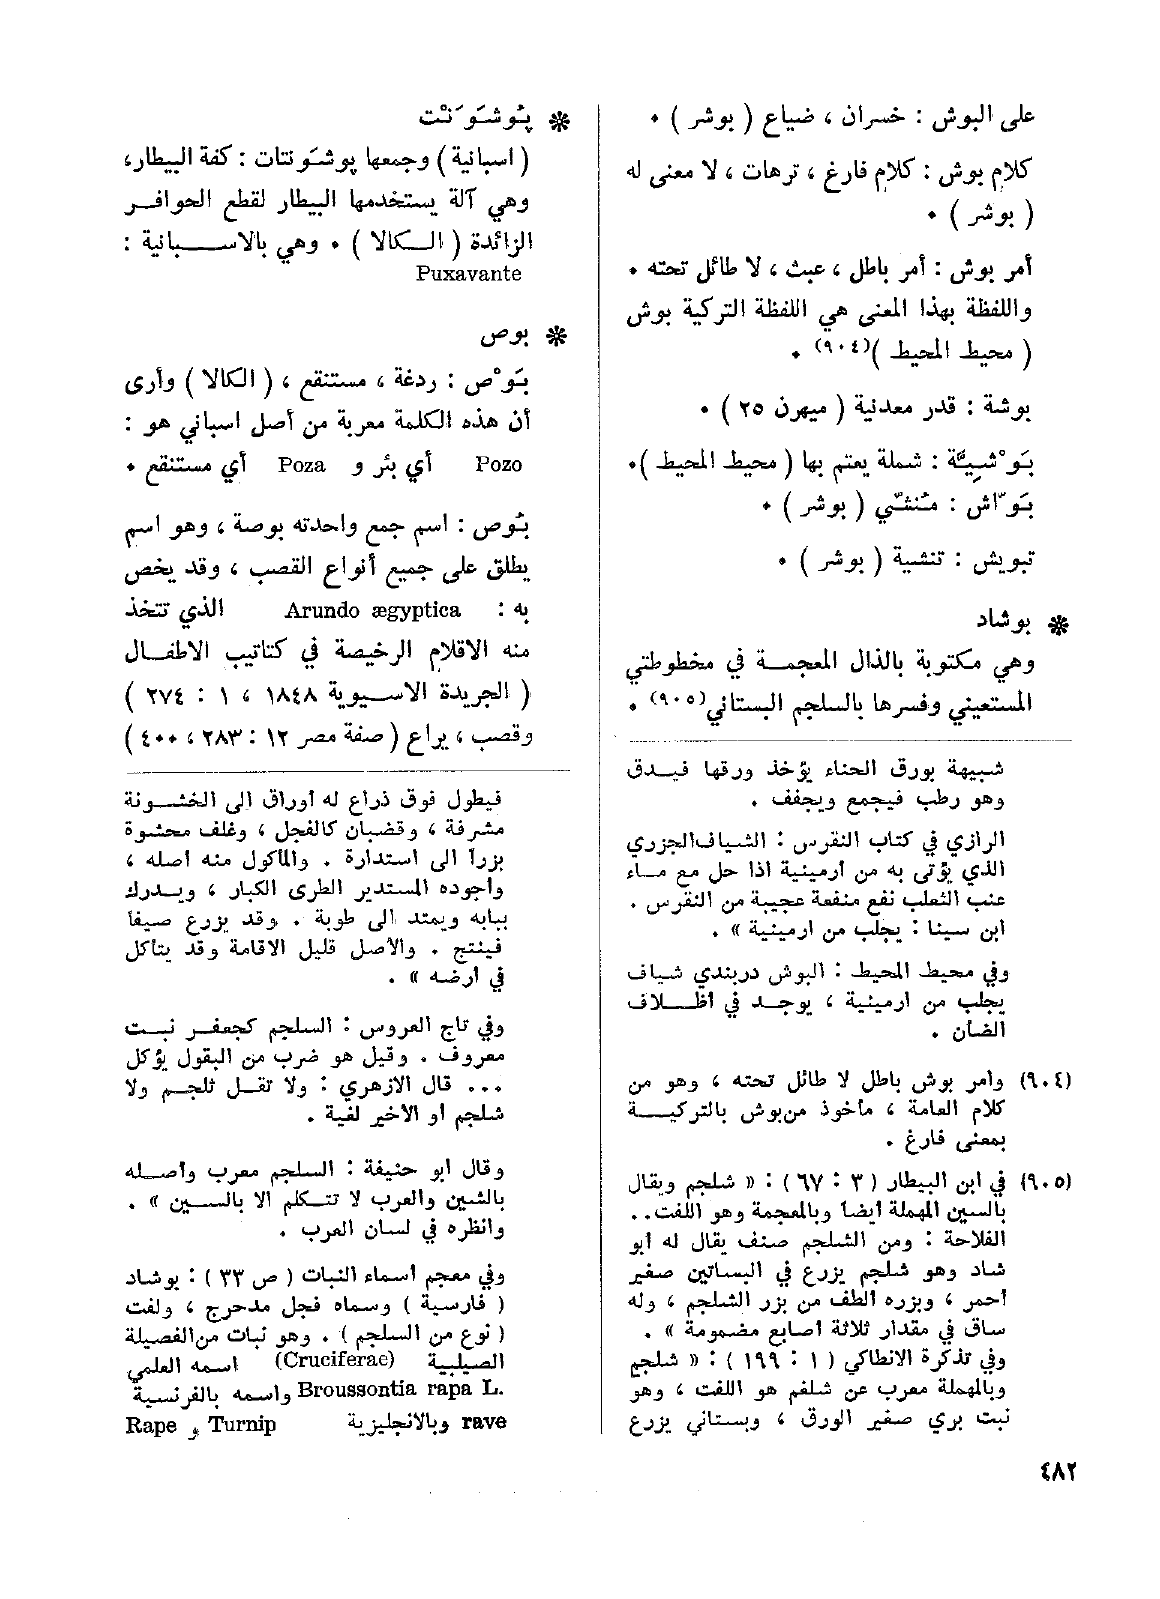 على البوش : خسران ، ضياع ( بوشر ) ٠
كلام بوش : كلام فارغ ، ترهات ، لا معنى له
( بوشر ) ٠
أمر بوش : أمر باطل ، عبث ، لا طائل تحته ٠
واللفظة بهذا المعنى هي اللفظة التركية بوش
( محيط المحيط )(٩٠٤) ٠
بوشة : قدر معدنية ( ميهرن ٢٥ ) ٠
بَوْشِيَّة : شملة يعتم بها ( محيط المحيط )٠
بَوّاش : مُنَشّي ( بوشر ) ٠
تبويش : تنشية ( بوشر ) ٠
❋ بوشاد
وهي مكتوبة بالذال المعجمة في مخطوطتي
المستعيني وفسرها بالسلجم البستاني(٩٠٥) ٠
شبيهة بورق الحناء يؤخذ ورقها فيدق
وهو رطب فيجمع ويجفف .
الرازي في كتاب النقرس : الشياف الجزري
الذي يؤتى به من أرمينية اذا حل مع ماء
عنب الثعلب نفع منفعة عجيبة من النقرس .
ابن سينا : يجلب من ارمينية » .
وفي محيط المحيط : البوش دربندي شياف
يجلب من ارمينية ، يوجد في اظلاف
الضأن .
(٩٠٤) وامر بوش باطل لا طائل تحته ، وهو من
كلام العامة ، مأخوذ من بوش بالتركية
بمعنى فارغ .
(٩٠٥) في ابن البيطار ( ٣ : ٦٧ ) : « شلجم ويقال
بالسين المهملة ايضا وبالمعجمة وهو اللفت..
الفلاحة : ومن الشلجم صنف يقال له ابو
شاد وهو شلجم يزرع في البساتين صغير
احمر ، وبزره الطف من بزر الشلجم ، وله
ساق في مقدار ثلاثة اصابع مضمومة » .
وفي تذكرة الانطاكي ( ١ : ١٩٩ ) : « شلجم
وبالمهملة معرب عن شلغم هو اللفت ، وهو
نبت بري صغير الورق ، وبستاني يزرع
❋ پُوشَوَنْت
( اسبانية ) وجمعها پوشَونتات : كفة البيطار،
وهي آلة يستخدمها البيطار لقطع الحوافر
الزائدة ( الكالا ) ٠ وهي بالاسبانية :
Puxavante
❋ بوص
بَوْص : ردغة ، مستنقع ، ( الكالا ) وأرى
أن هذه الكلمة معربة من أصل اسباني هو :
Pozo أي بئر و Poza أي مستنقع ٠
بُوص : اسم جمع واحدته بوصة ، وهو اسم
يطلق على جميع أنواع القصب ، وقد يخص
به : Arundo ægyptica الذي تتخذ
منه الاقلام الرخيصة في كتاتيب الاطفال
( الجريدة الاسيوية ١٨٤٨ ، ١ : ٢٧٤ )
وقصب ، يراع ( صفة مصر ١٢ : ٢٨٣ ، ٤٠٠ )
فيطول فوق ذراع له أوراق الى الخشونة
مشرفة ، وقضبان كالفجل ، وغلف محشوة
بزرا الى استدارة . والمأكول منه اصله ،
واجوده المستدير الطرى الكبار ، ويدرك
ببابه ويمتد الى طوبة . وقد يزرع صيفا
فينتج . والاصل قليل الاقامة وقد يتأكل
في أرضه » .
وفي تاج العروس : السلجم كجعفر نبت
معروف . وقيل هو ضرب من البقول يؤكل
... قال الازهري : ولا تقل ثلجم ولا
شلجم او الاخير لغية .
وقال ابو حنيفة : السلجم معرب واصله
بالشين والعرب لا تتكلم الا بالسين » .
وانظره في لسان العرب .
وفي معجم اسماء النبات ( ص ٣٣ ) : بوشاد
( فارسية ) وسماه فجل مدحرج ، ولفت
( نوع من السلجم ) . وهو نبات من الفصيلة
الصليبية (Cruciferae) اسمه العلمي
Broussontia rapa L. واسمه بالفرنسية
rave وبالانجليزية Turnip و Rape
٤٨٢